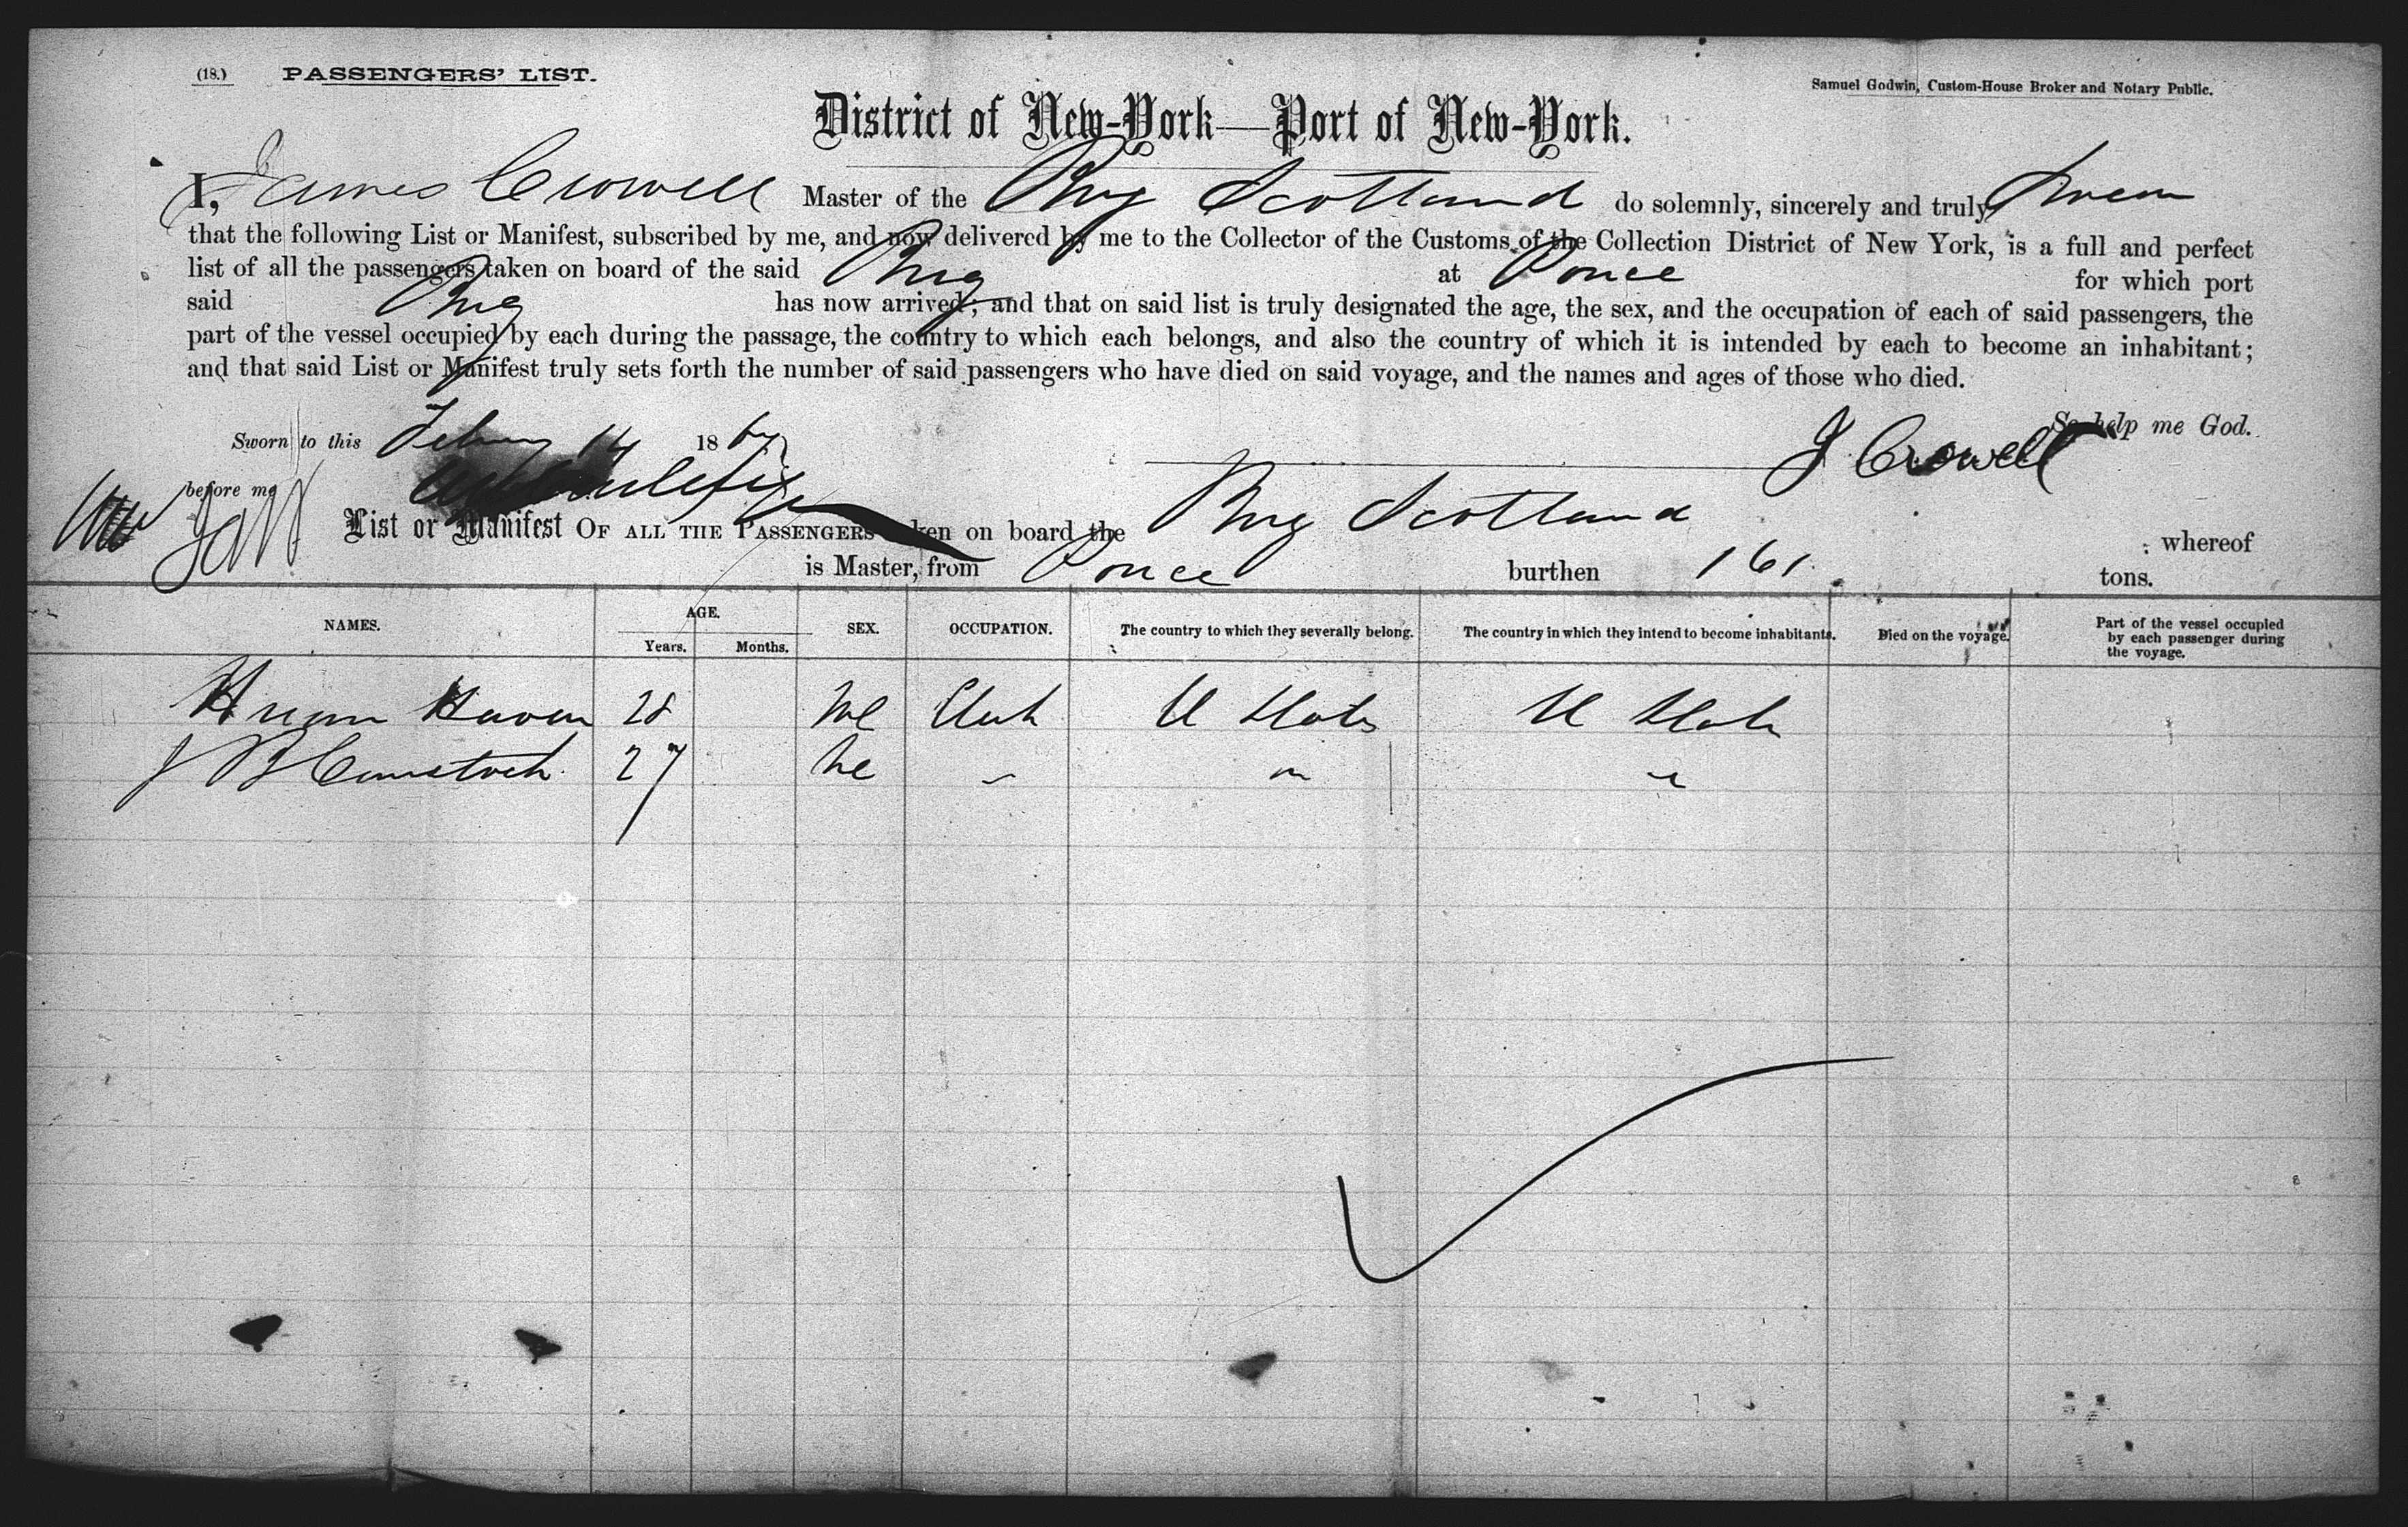 (18.) PASSENGERS' LIST.
Samuel Godwin, Custom-House Broker and Notary Public.
District of New-York—Port of New-York.
I, James Crowell Master of the Brig Scotland do solemnly, sincerely and truly Swear
that the following List or Manifest, subscribed by me, and now delivered by me to the Collector of the Customs of the Collection District of New York, is a full and perfect
list of all the passengers taken on board of the said Brig at Ponce for which port
said Brig has now arrived; and that on said list is truly designated the age, the sex, and the occupation of each of said passengers, the
part of the vessel occupied by each during the passage, the country to which each belongs, and also the country of which it is intended by each to become an inhabitant;
and that said List or Manifest truly sets forth the number of said passengers who have died on said voyage, and the names and ages of those who died.
So help me God.
Sworn to this 14 186
J Crowell
before me
List or Manifest OF ALL THE PASSENGERS taken on board the Brig Scotland whereof
is Master, from Ponce burthen 161 tons.
NAMES. AGE. Years. Months. SEX. OCCUPATION. The country to which they severally belong. The country in which they intend to become inhabitants. Died on the voyage. Part of the vessel occupied by each passenger during the voyage.
Hiram Haven 28 Ml Clerk U States U States
J B Comstock 27 Ml " " "